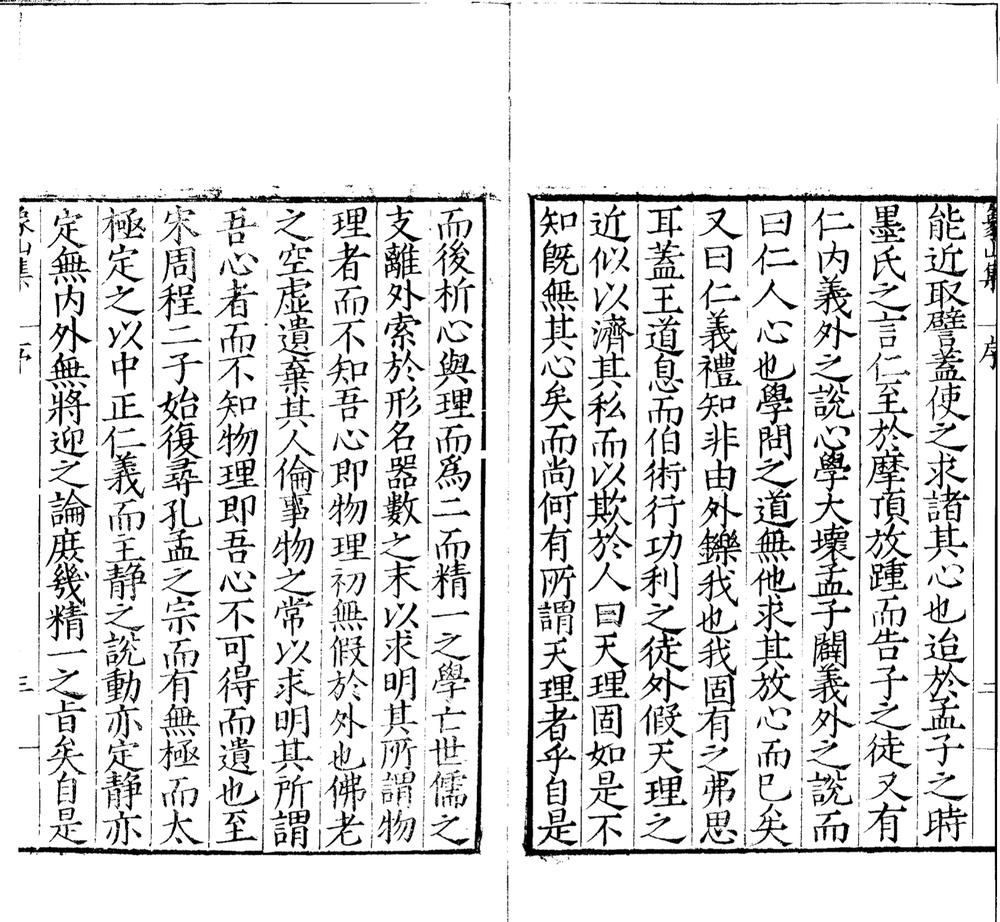 象山集 序 二
能近取譬蓋使之求諸其心也迨於孟子之時
墨氏之言仁至於摩頂放踵而告子之徒又有
仁內義外之說心學大壞孟子闢義外之說而
曰仁人心也學問之道無他求其放心而已矣
又曰仁義禮知非由外鑠我也我固有之弗思
耳蓋王道息而伯術行功利之徒外假天理之
近似以濟其私而以欺於人曰天理固如是不
知旣無其心矣而尚何有所謂天理者乎自是
而後析心與理而爲二而精一之學亡世儒之
支離外索於形名器數之末以求明其所謂物
理者而不知吾心即物理初無假於外也佛老
之空虛遺棄其人倫事物之常以求明其所謂
吾心者而不知物理即吾心不可得而遺也至
宋周程二子始復尋孔孟之宗而有無極而太
極定之以中正仁義而主靜之說動亦定靜亦
定無內外無將迎之論庶幾精一之旨矣自是
象山集 序 三